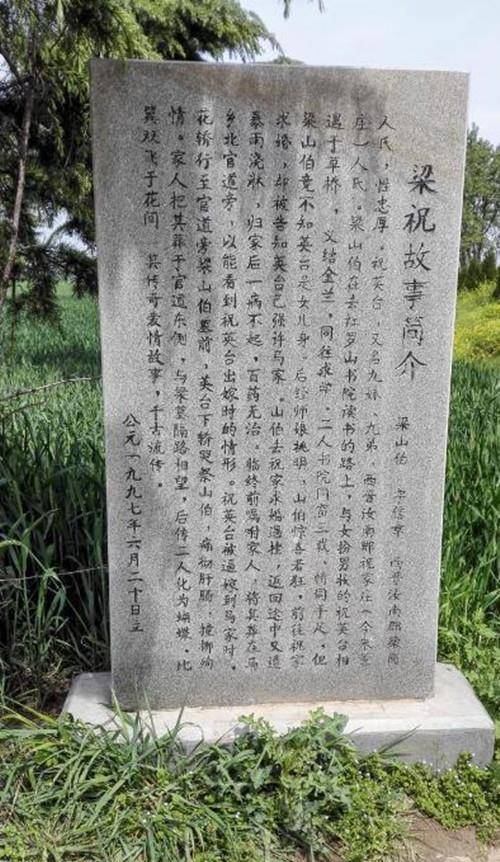 梁祝故事简介
梁山伯 字信章 西晋汝南郡梁岗
人氏，性忠厚。祝英台，又名九妹、九弟，西晋汝南郡祝家庄（今朱
庄一人氏。梁山伯在去红罗山书院读书的路上，与女扮男妆的祝英台相
遇于草桥，义结金兰，同往求学。二人书院同窗三载，情同手足，但
梁山伯竟不知英台是女儿身，后经师娘挑明，山伯惊喜若狂，前往祝家
求婚，却被告知英台已强许马家。山伯去祝家求婚遇挫，返回途中又遭
暴雨浇淋，归家后一病不起，百药无治。临终前嘱咐家人，将其葬在马
乡北官道旁，以能看到祝英台出嫁时的情形。祝英台被逼嫁到马家时，
花轿行至官道旁梁山伯墓前，英台下轿哭祭山伯，痛彻肝肠，撞柳殉
情。家人把其葬于官道东侧，与梁墓隔路相望，后传二人化为蝴蝶，比
翼双飞于花间 其传奇爱情故事，千古流传。
公元一九九七年六月二十日立